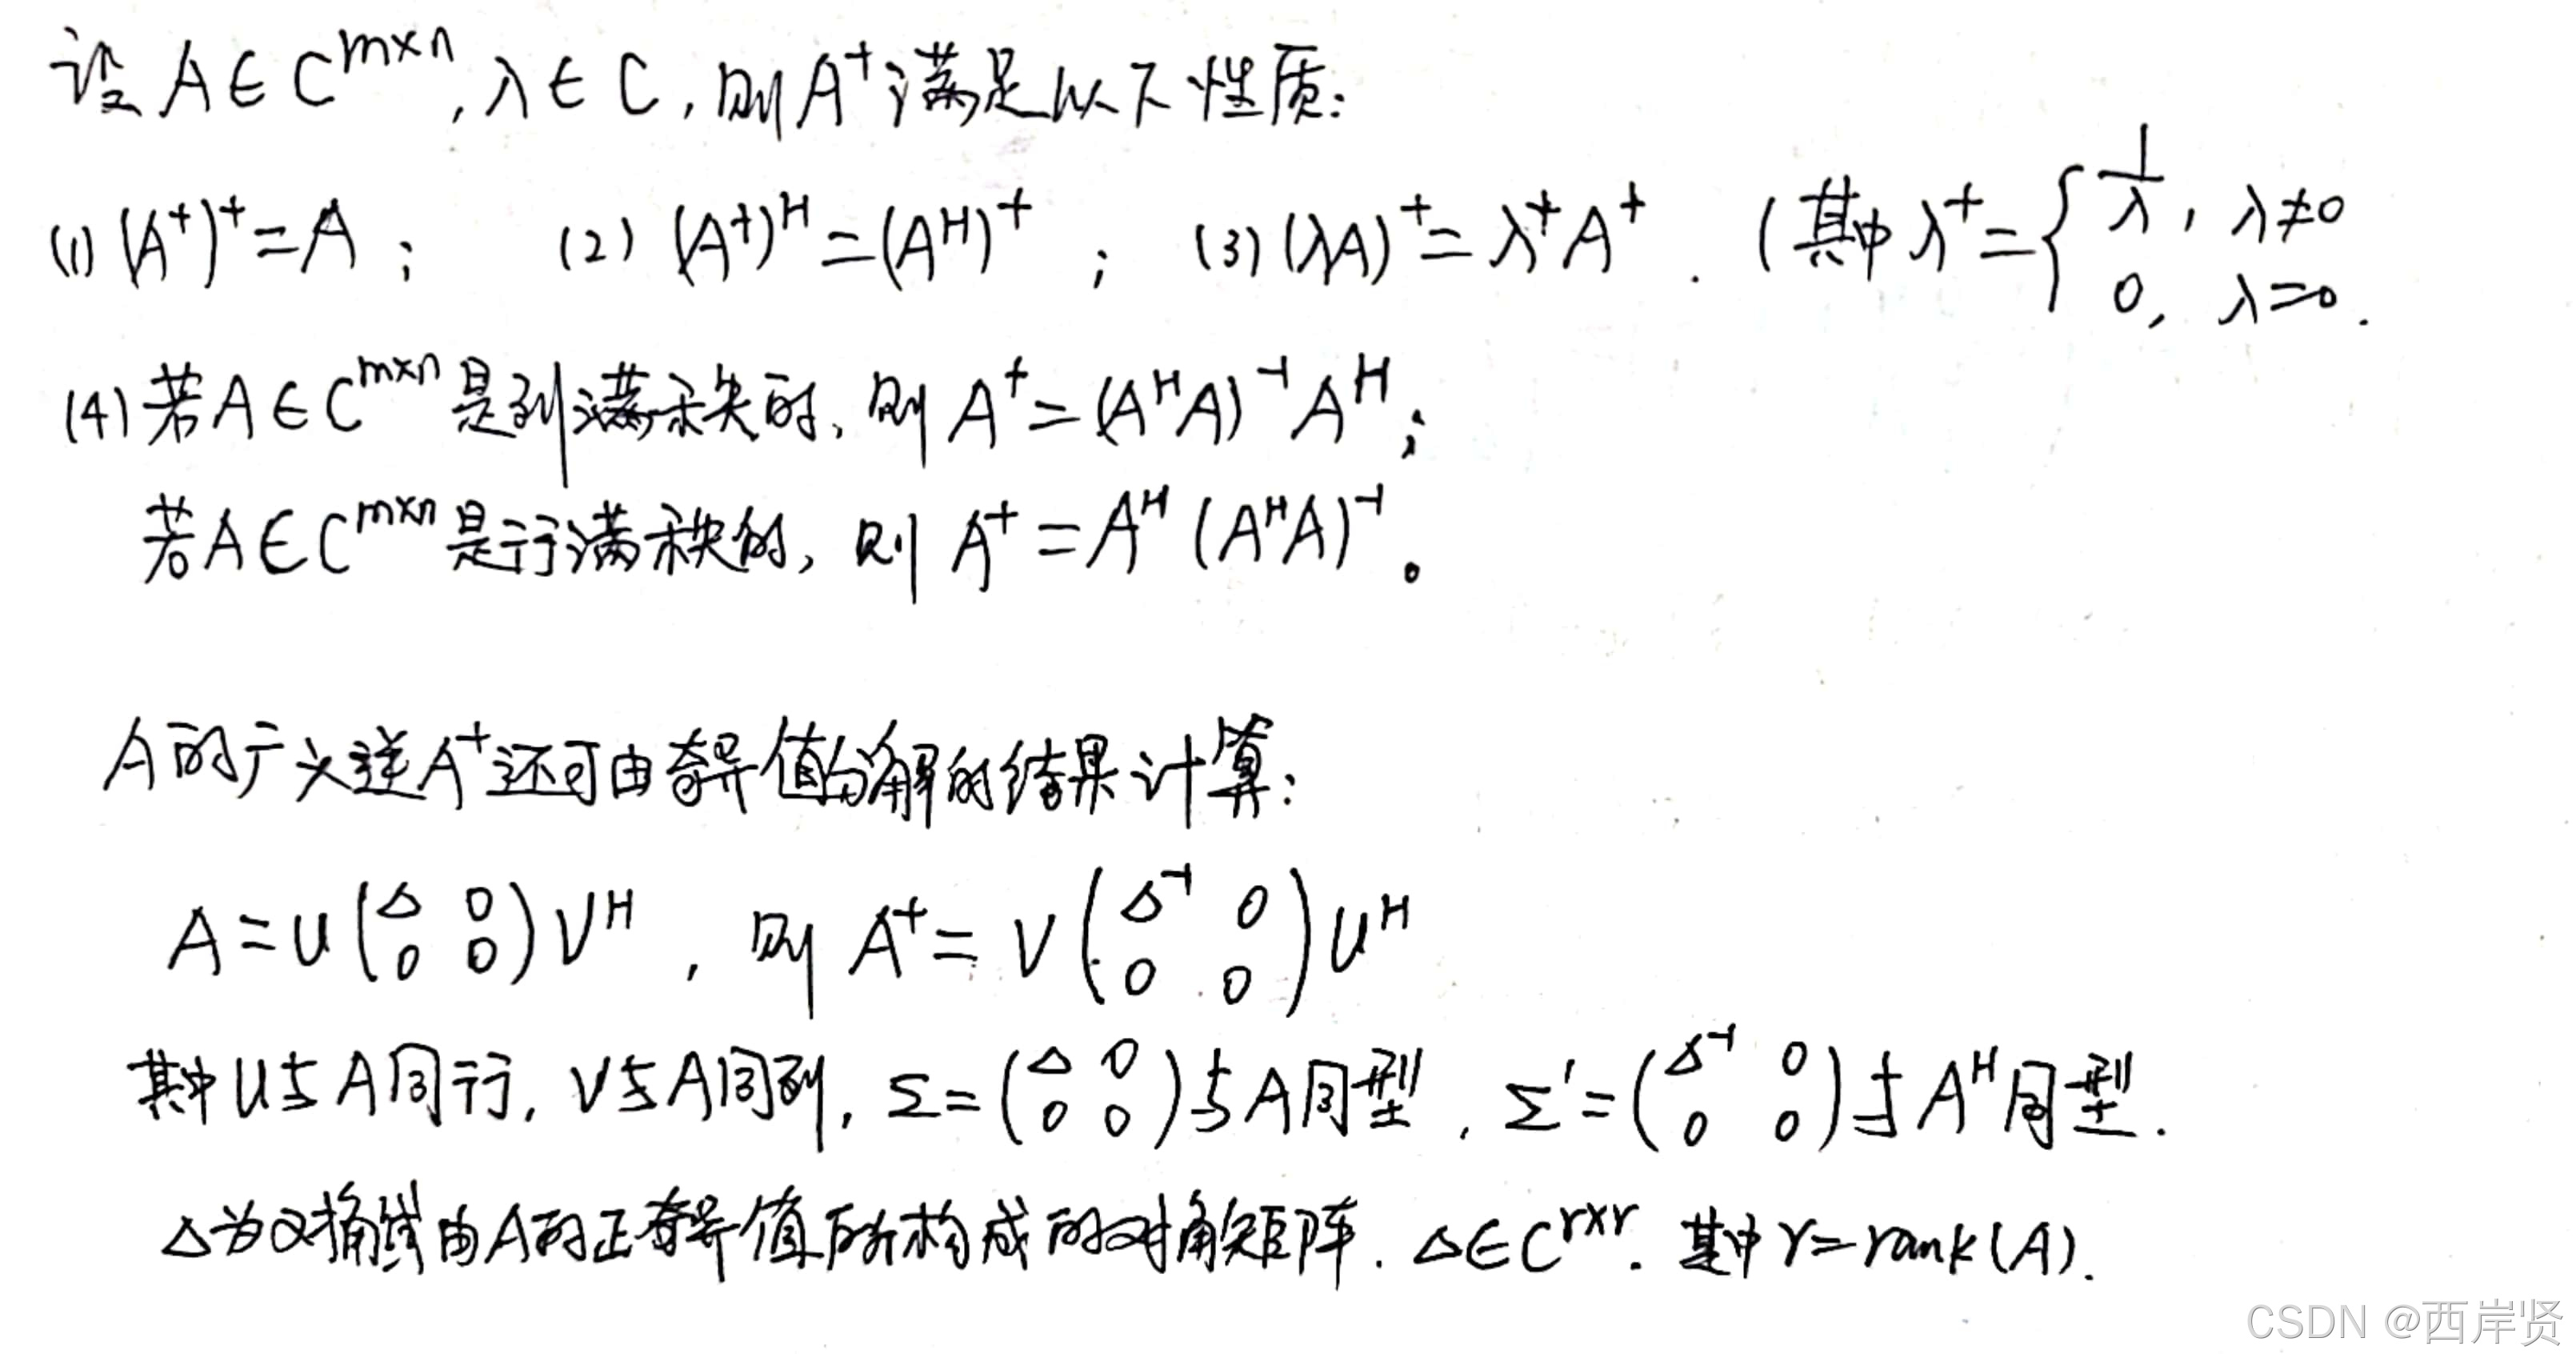 设 A∈C^{m×n}, λ∈C, 则A⁺满足以下性质:
(1) (A⁺)⁺=A ; (2) (A⁺)^H=(A^H)⁺ ; (3) (λA)⁺=λ⁺A⁺ . (其中 λ⁺={ 1/λ, λ≠0
0, λ=0.
(4) 若A∈C^{m×n}是列满秩的, 则 A⁺=(A^H A)^{-1} A^H;
若A∈C^{m×n}是行满秩的, 则 A⁺=A^H (A^H A)^{-1}。
A的广义逆A⁺还可由奇异值分解的结果计算:
A=U(Δ 0; 0 0)V^H , 则 A⁺=V(Δ^{-1} 0; 0 0)U^H
其中U与A同行, V与A同列, Σ=(Δ 0; 0 0)与A同型, Σ'=(Δ^{-1} 0; 0 0)与A^H同型.
Δ为对角线由A的正奇异值所构成的对角矩阵. Δ∈C^{r×r}. 其中r=rank(A).
CSDN @西岸贤